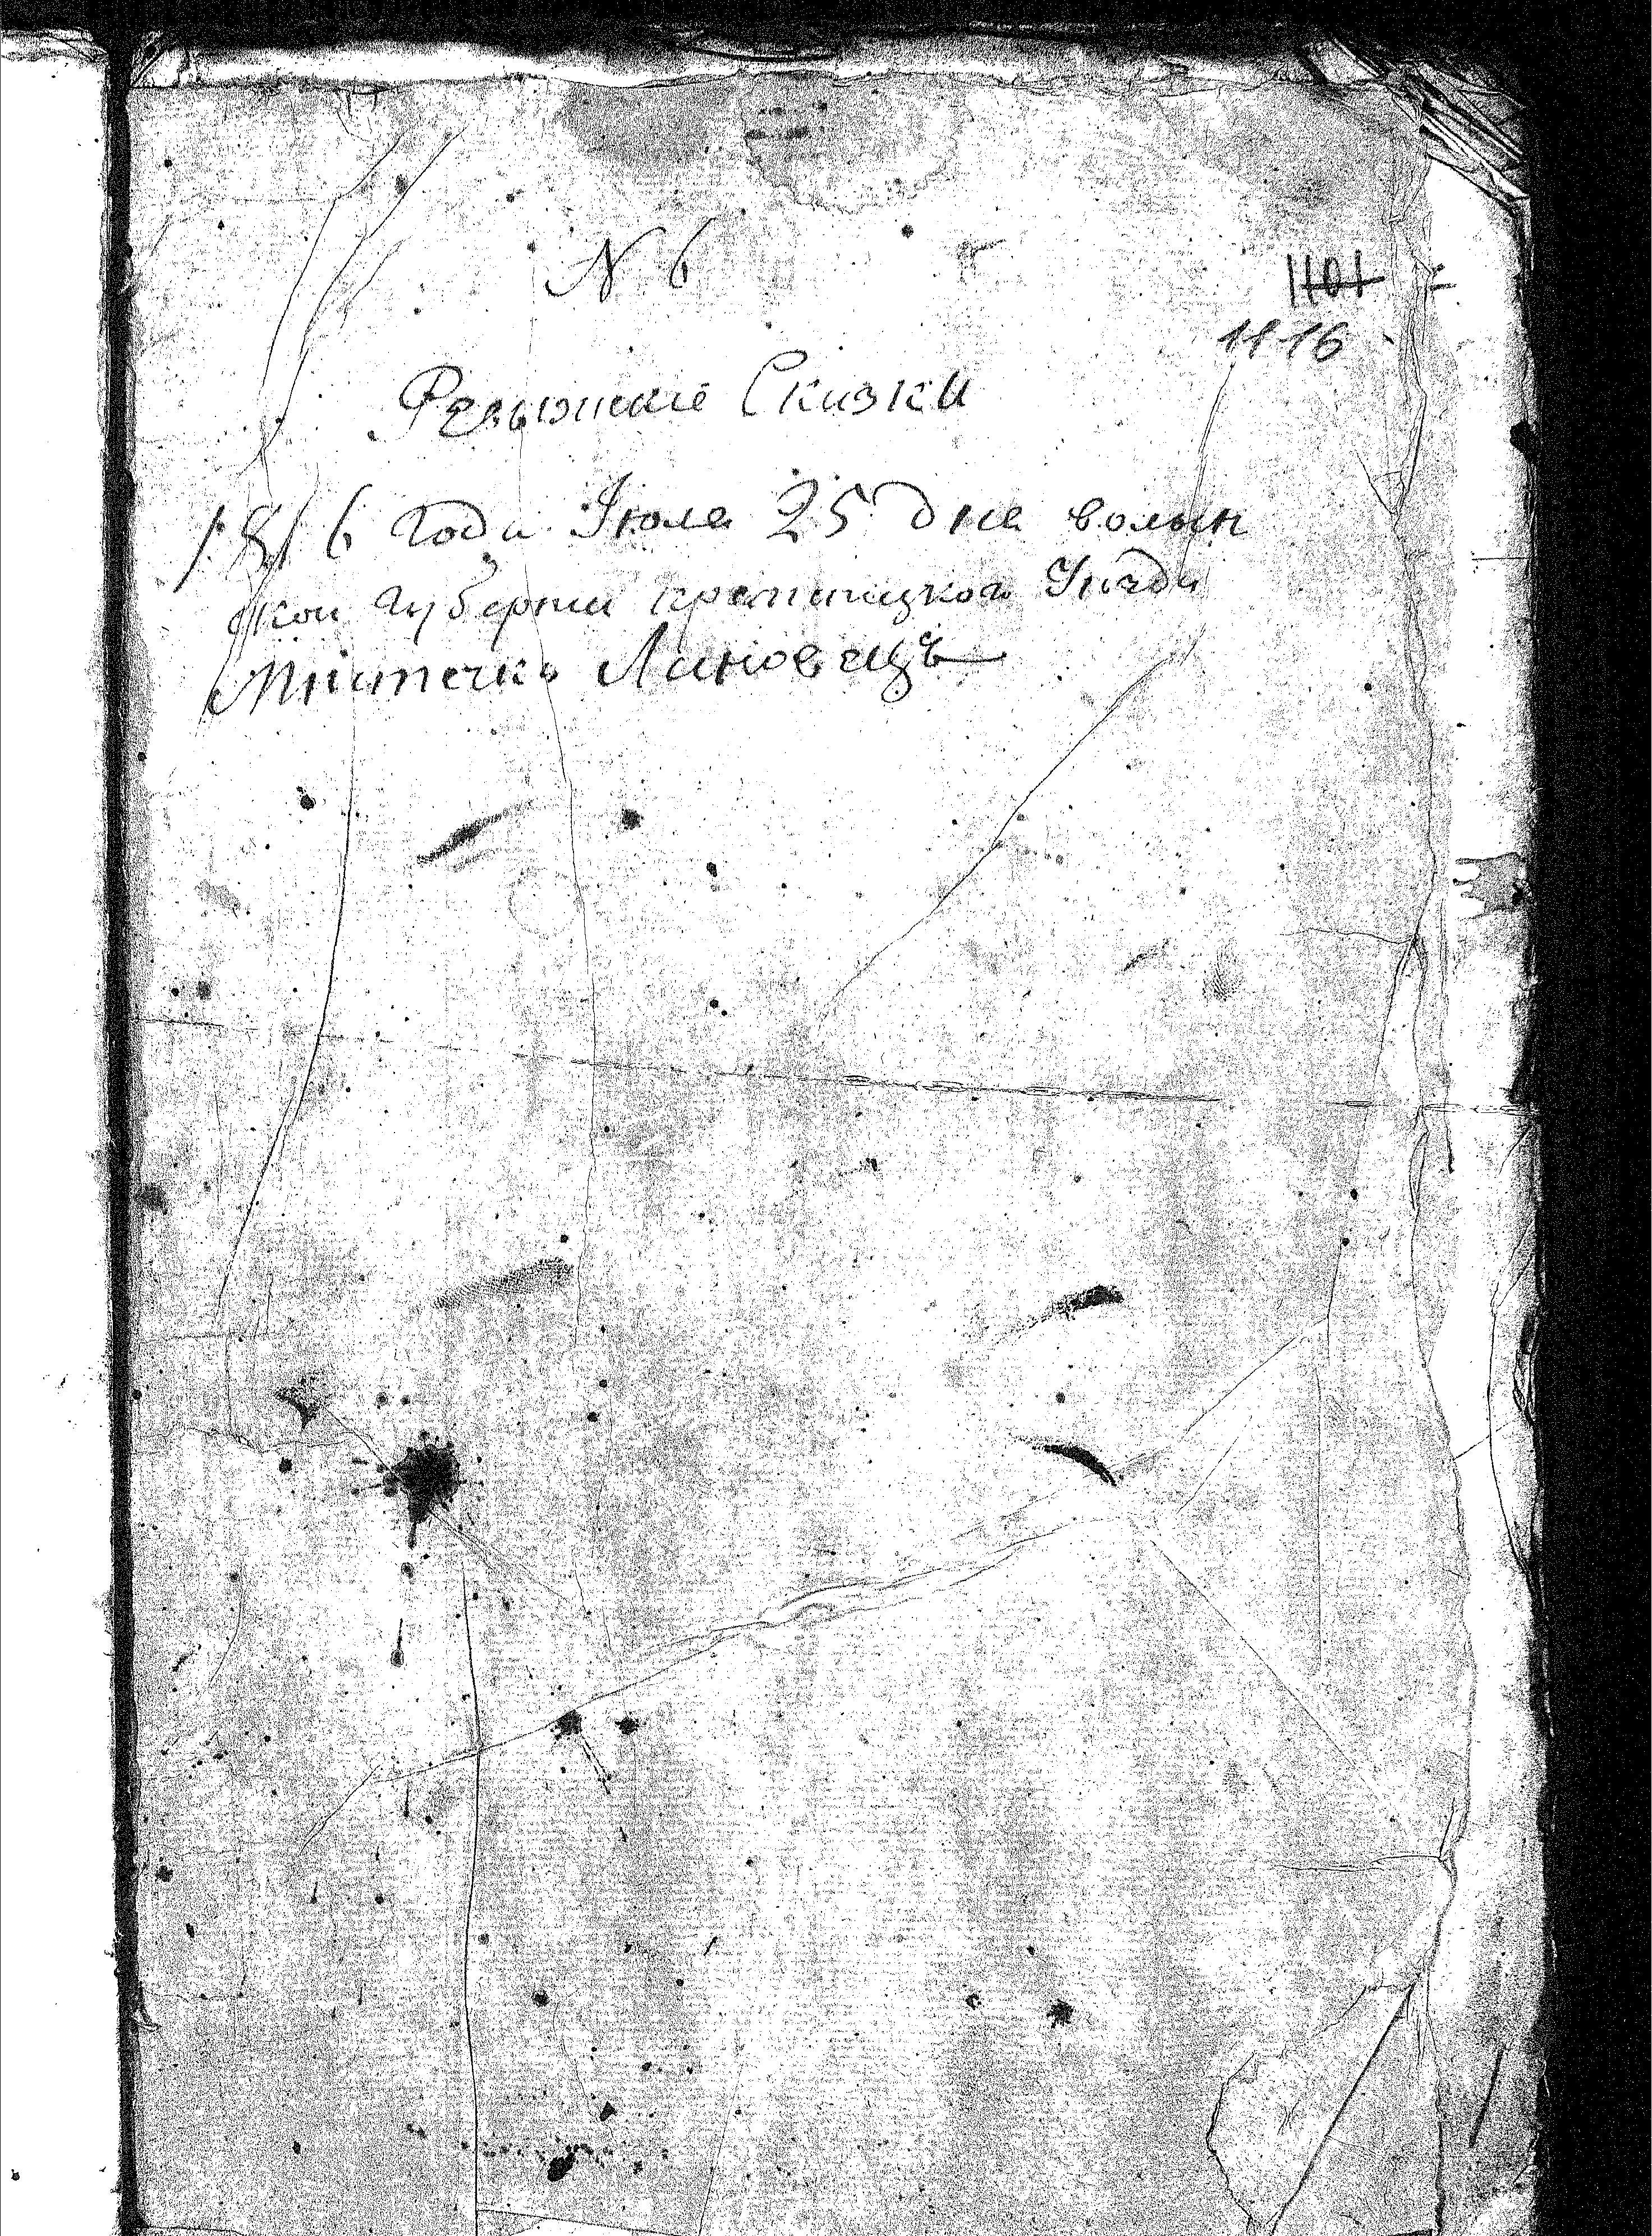 N 6
1101
1116
Ревизские Сказки
1816 года Июля 25 дня волын
ской губернии кременицкого Уезда
Мѣстечка Лановецъ